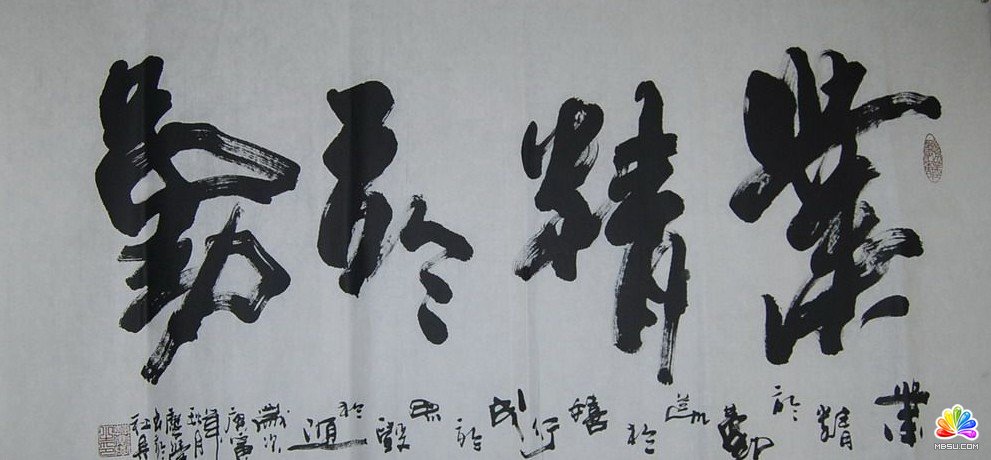 業精於勤
業精於勤荒於嬉行成於思毀於隨
歲次庚寅年秋月
MBSU.COM